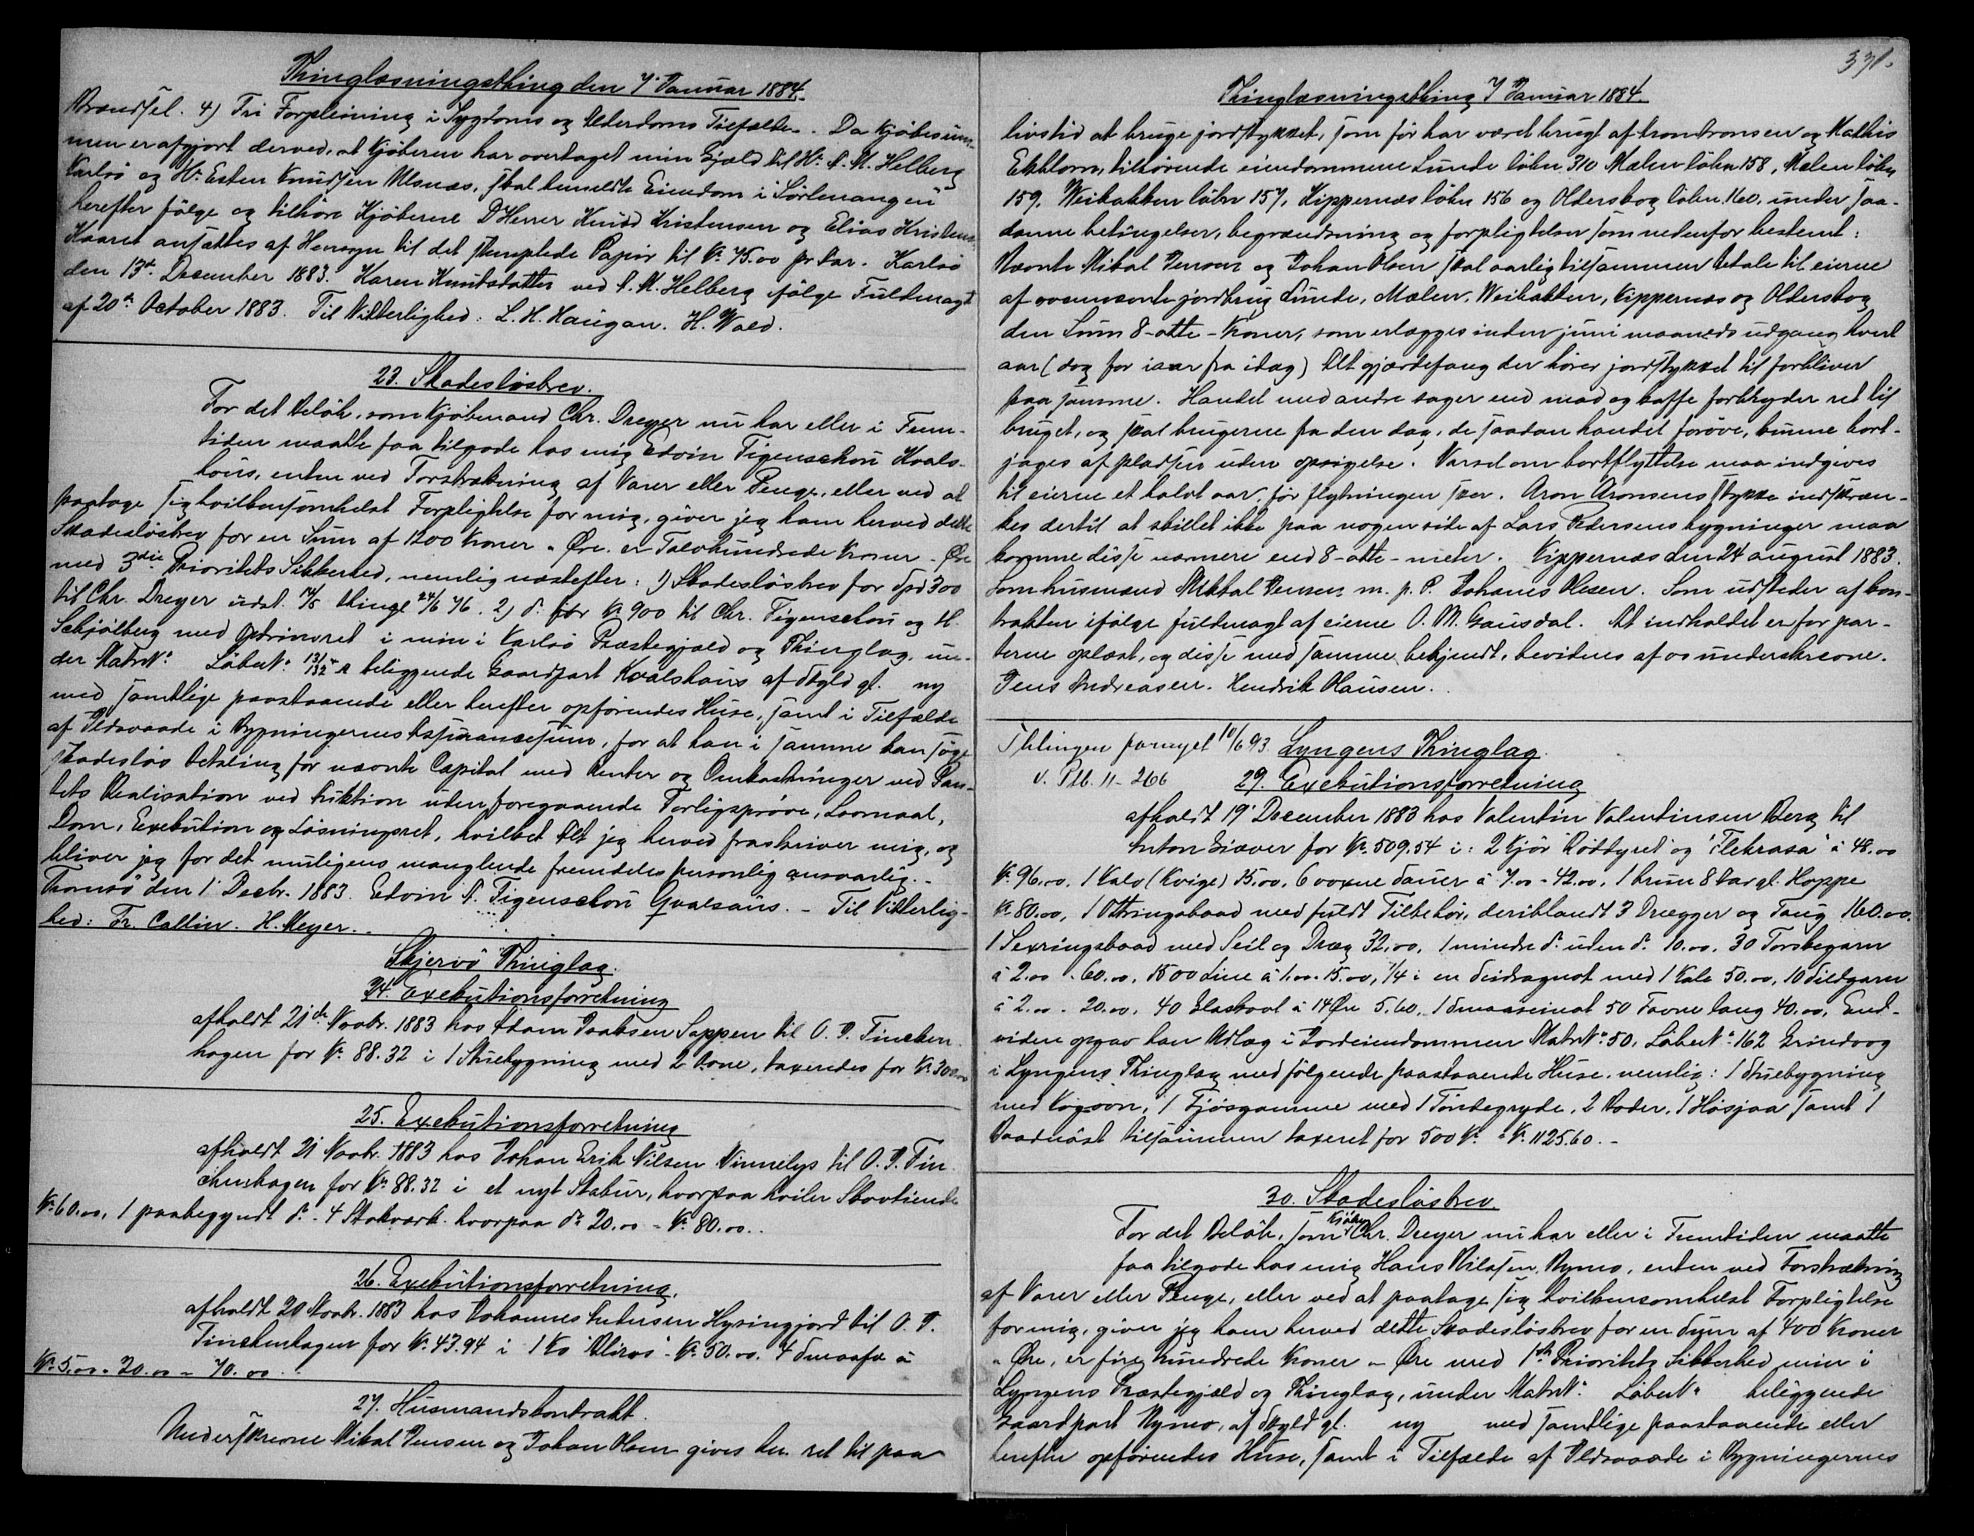 Thinglæsningsthing den 7' Januar 1884.
Brændsel. 4) Fri Forpleining i Sygdoms og Alderdoms Tilfælde. Da Kjøbesum-
men er afgjort derved, at Kjøberen har overtaget min Gjæld til Hr. A. M. Helberg
Karlsø og Hr. Esten Knudsen Ulsnæs, skal bemeldte Eiendom i Sörlenangen
herefter følge og tilhøre Kjøberne D'Herrer Knud Kristensen og Elias Kristens.
Kaaret ansættes af Hensyn til det stemplede Papir til Kr. 75.00 pr Aar. Karlsø
den 13de December 1883. Karen Knudsdatter ved A. M. Helberg ifølge Fuldmagt
af 20de October 1883. Til Vitterlighed: L. H. Haugan. H. Wald.
23. Skadesløsbrev.
For det Beløb, som Kjøbmand Chr. Dreyer nu har eller i Frem-
tiden maatte faa tilgode hos mig Edvin Figenschou Kvals-
hous, enten ved Forstrækning af Varer eller Penge, eller ved at
paatage sig hvilkensomhelst Forpligtelse for mig, giver jeg ham herved dette
Skadesløsbrev for en Sum af 1200 Kroner " Øre. er Tolvhundrede Kroner - Øre
med 3die Prioritets Sikkerhed, nemlig næstefter: 1) Skadesløsbrev for Spd 300
til Chr. Dreyer udst. thingl 24/6 76. 2) do for Kr 900 til Chr. Figenschou og H.
Schjølberg med Optrinsret i min i Karlsø Præstegjæld og Thinglag, un-
der Matr No Löbe No beliggende Gaardpart Kvalshaus af Skyld gl. ny
med samtlige paastaaende eller herefter opførendes Huse, samt i Tilfælde
af Ildsvaade i Bygningernes Assurancesum, for at han i samme kan søge
skadesløs Betaling for nævnte Capital med Renter og Omkostninger ved Pan-
tets Realisation ved Auktion uden foregaaende Forligsprøve, Lovmaal,
Dom, Execution og Løsningsret, hvilket Alt jeg herved fraskriver mig, og
bliver jeg for det muligens manglende fremdeles personlig ansvarlig. -
Tromsø den 1' Decbr. 1883. Edvin A. Figenschou Qvalsaus. - Til Vitterlig-
hed: Fr. Callin. H. Meyer.
Skjervø Thinglag.
24. Exekutionsforretning
afholdt 21de Novbr. 1883 hos Adam Isaksen Sappen til O. P. Fincken-
hagen for Kr. 88.32 i 1 Stuebygning med 2 Ovne, taxeredes for Kr 300.00
25. Exekutionsforretning
afholdt 21 Novbr. 1883 hos Johan Erik Nilsen Vinnelys til O. P. Fin-
ckenhagen for Kr. 88.32 i et nyt Stabur, hvorpaa hviler Skovtiende
Kr. 60.00, 1 paabegyndt do - 4 Stokværk. hvorpaa do 20.00 - Kr. 80.00.
26. Exekutionsforretning.
afholdt 20 Novbr. 1883 hos Johannes Andersen Hysingjord til O. P.
Finckenhagen for Kr. 47.94 i 1 Ko "Aliros" Kr. 50.00. 4 Smaafæ à
Kr. 5.00 - 20.00 = 70.00
27. Husmandskontrakt.
Underskrevne Mikal Jensen og Johan Olsen gives her ret til paa
331.
Thinglæsningsthing 7 Januar 1884.
livstid at bruge jordstykket, som før har været brugt af Aron Aronsen og Mathis
Ekkhorn, tilhørende eiendommene Lunde løbn 310 Mælen løbn 158, Mælen løbn
159. Weibakken løbn 157, Kippernæs løbn 156 og Olderskog løbn 160. under saa-
danne betingelser, begrændsning og forpligtelser som nedenfor bestemt:
Nævnte Mikal Jensen og Johan Olsen skal aarlig tilsammen betale til eierne
af ovennævnte jordbrug Lunde, Mælen, Weibakken, Kippernæs og Olderskog
den Sum 8 - otte - Kroner, som erlægges inden juni maaneds udgang hvert
aar (dog for iaar fra idag) Alt gjærdefang der hører jordstykket til forbliver
paa samme. Handel med andre sager end mad og kaffe forbryder ret til
bruget, og skal brugerne fra den dag, de saadan handel forøve, kunne bort-
jages af pladsen uden opsigelse. Varsel om bortflyttelse maa indgives
til eierne et halvt aar, før flytningen sker. Aron Aronsens stykke indskræn-
kes dertil at skillet ikke paa nogen side af Lars Pedersens bygninger maa
komme disse nærmere end 8 - otte - meter. Kippernæs den 24 august 1883.
Som husmænd Mikkal Jensen m. p. P. Johanes Olesen. Som udsteder af kon-
trakten ifølge fuldmagt af eierne O. M. Gausdal. At indholdet er for par-
terne oplæst, og disse med samme bekjendt, bevidnes af os underskrevne.
Jens Andreasen. Hendrik Hansen.
Thlingen fornyet 10/6 93
v. Ptb. 11 - 266
Lyngens Thinglag.
29. Exekutionsforretning
afholdt 19' December 1883 hos Valentin Valentinsen Berg til
Anton Giæver for Kr. 509.54 i: 2 Kjør "Röddyrei" og "Flekrasa" à 48.00
Kr. 96.00. 1 Kalv (Kvige) 15.00, 6 voxne Sauer à 7.00 - 42.00, 1 brun 8 Aar gl. Hoppe
Kr. 80.00, 1 Ottringsbaad med fuldt Tilbehör, deriblandt 3 Drægger og Taug 160.00.
1 Sexringsbaad med Seil og Dræg 32.00, 1 mindre do uden do 10.00. 30 Torskegarn
à 2.00 - 60.00, 1500 Line à 1.00 - 15.00, 1/4 i en Seidragnot med 1 Kale 50.00, 10 Sildgarn
à 2.00 - 20.00, 40 Glaskavl à 14 Øre 5.60, 1 Smaaseinot 50 Favne lang 40.00, End-
videre opgav han Udlæg i Jordeiendommen Matr No 50, Löbe No 162 Grindvog
i Lyngens Thinglag med følgende paastaaende Huse, nemlig: 1 Stuebygning
med Kogeovn, 1 Fjösgamme med 1 Töndegryde, 2 Boder, 1 Høsjaa samt 1
Baadnöst tilsammen taxeret for 500 Kr. = Kr. 1125.60. -
30. Skadesløsbrev.
For det Beløb, som Kjøbm Chr. Dreyer nu har eller i Fremtiden maatte
faa tilgode hos mig Hans Nilsen Nymo, enten ved Forstrækning
af Varer eller Penge, eller ved at paatage sig hvilkensomhelst Forpligtelse
for mig, giver jeg ham herved dette Skadesløsbrev for en Sum af 400 Kroner
" Øre, er fire hundrede Kroner - Øre med 1ste Prioritets Sikkerhed min i
Lyngens Præstegjæld og Thinglag, under Matr No Löbe No beliggende
Gaardpart Nymo, af Skyld gl. ny med samtlige paastaaende eller
herefter opførendes Huse, samt i Tilfælde af Ildsvaade i Bygningernes